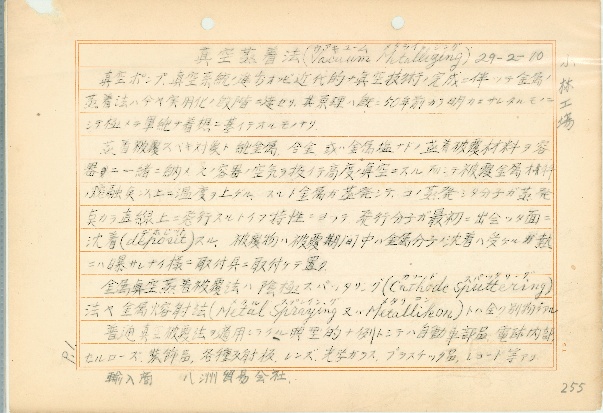 真空蒸着法(Vacuum Metallizing) 29-2-10
バキューム メタライジング
小林工場
真空ポンプ、真空系統ノ 近代的ナ真空技術ノ完成ニ伴ッテ金属ノ
蒸着法ハ今ヤ実用化ノ段階ニ達セリ、其原理ハ既ニ 年前カラ明カニサレタルモノニ
シテ極メテ単純ナ着想ニ基イテヰルモノナリ.
蒸着被覆スベキ対象ト純金属、合金 或ハ金属塩ナドノ蒸着被覆材料ヲ容
器中ニ一緒ニ納メ、容器ノ空気ヲ抜イテ高度ノ真空ニスル 被覆金属材料
ノ 融点以上ニ温度ヲ上ゲル. スルト金属ガ蒸発シテ、コノ蒸発シタ分子ガ蒸発
点カラ直線上ニ飛行スルトイフ特性ニヨッテ 飛行分子ガ最初ニ出会ッタ面ニ
沈着(deposit)スル. 被覆物ハ被覆期間中ハ金属分子ノ沈着ハ受ケルガ熱
ニハ曝サレナイ様ニ取付具ニ取付ケテ置ク.
金属真空蒸着被覆法ハ陰極スパッタリング(Cathode Sputtering)
法ヤ金属熔射法(Metal Spraying 又ハ Metallikon)トハ全ク別物デアル
普通真空被覆法ヲ適用シテヰル典型的ナ例トシテハ自動車部品、電球内部、
セルローズ、装飾品、各種反射板、レンズ、光学ガラス、プラスチック品、レコード等アリ
輸入商 八洲貿易会社.
P.1.
255